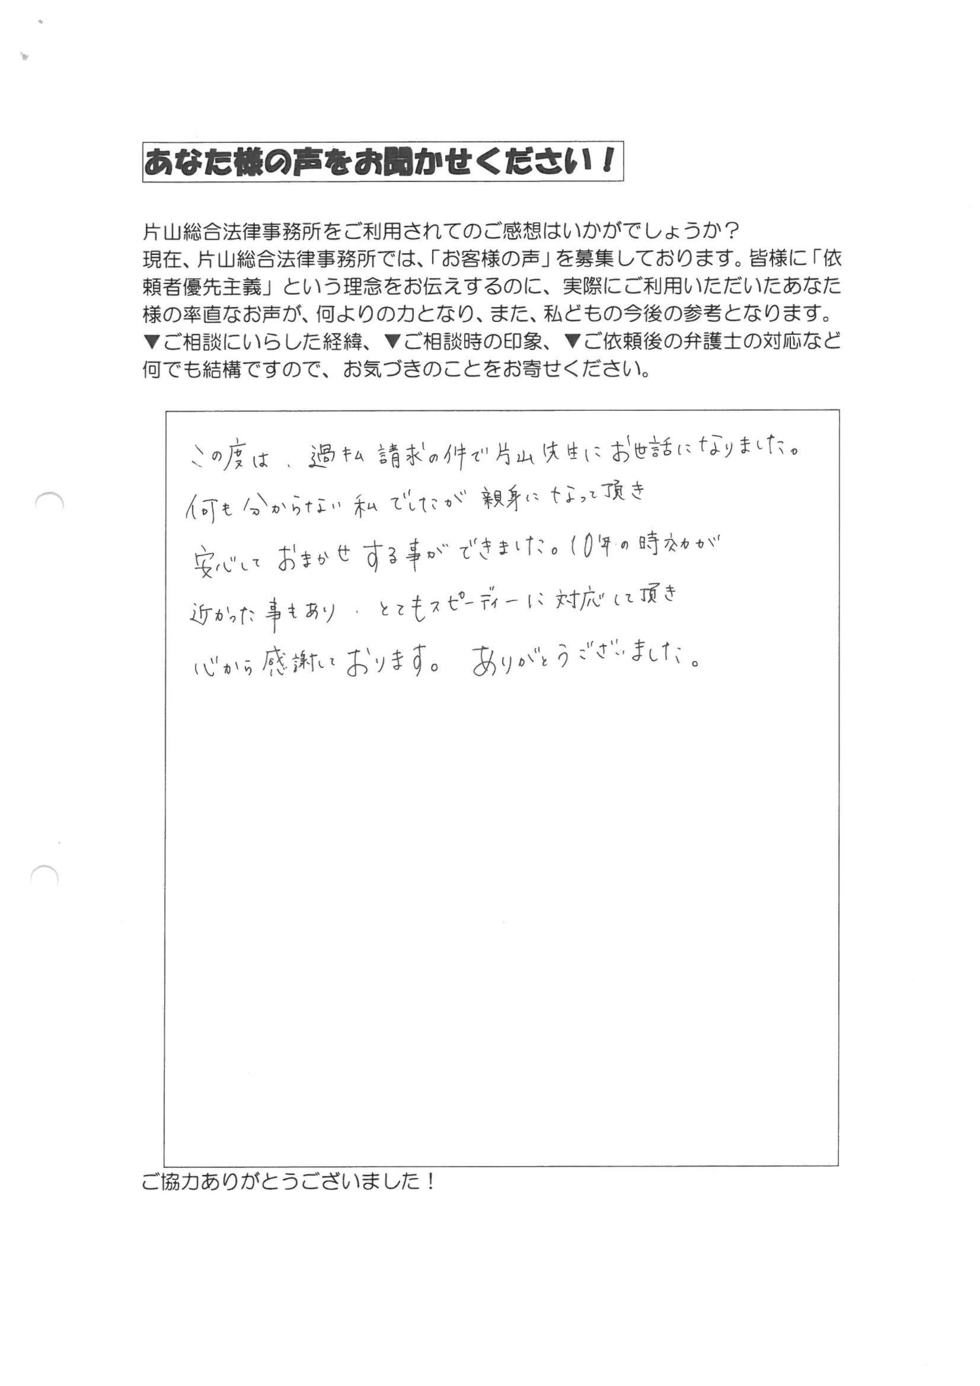 あなた様の声をお聞かせください！
片山総合法律事務所をご利用されてのご感想はいかがでしょうか？
現在、片山総合法律事務所では、「お客様の声」を募集しております。皆様に「依
頼者優先主義」という理念をお伝えするのに、実際にご利用いただいたあなた
様の率直なお声が、何よりの力となり、また、私どもの今後の参考となります。
▼ご相談にいらした経緯、▼ご相談時の印象、▼ご依頼後の弁護士の対応など
何でも結構ですので、お気づきのことをお寄せください。
この度は、過払請求の件で片山先生にお世話になりました。
何も分からない私でしたが親身になって頂き
安心しておまかせする事ができました。10年の時効が
近かった事もあり、とてもスピーディーに対応して頂き
心から感謝しております。ありがとうございました。
ご協力ありがとうございました！